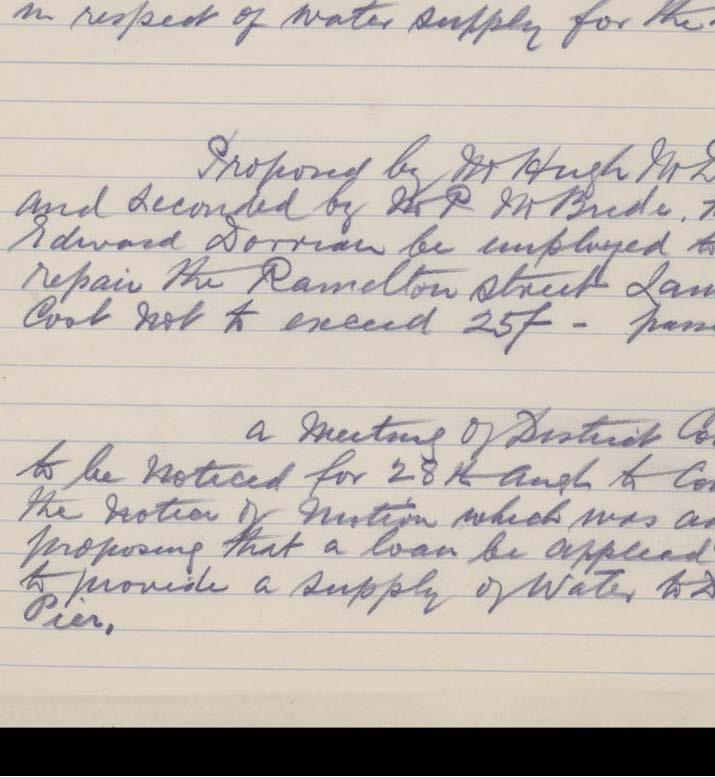 in respect of water supply for the
Proposed by Mr Hugh McD
and seconded by Mr P McBride,
Edward Dorrian be employed to
repair the Ramelton street Lam
Cost not to exceed 25/- - pass
a Meeting of District Co
to be noticed for 28th to Con
the notice of motion which was ad
proposing that a loan be applied
to provide a supply of Water to D
Pier.